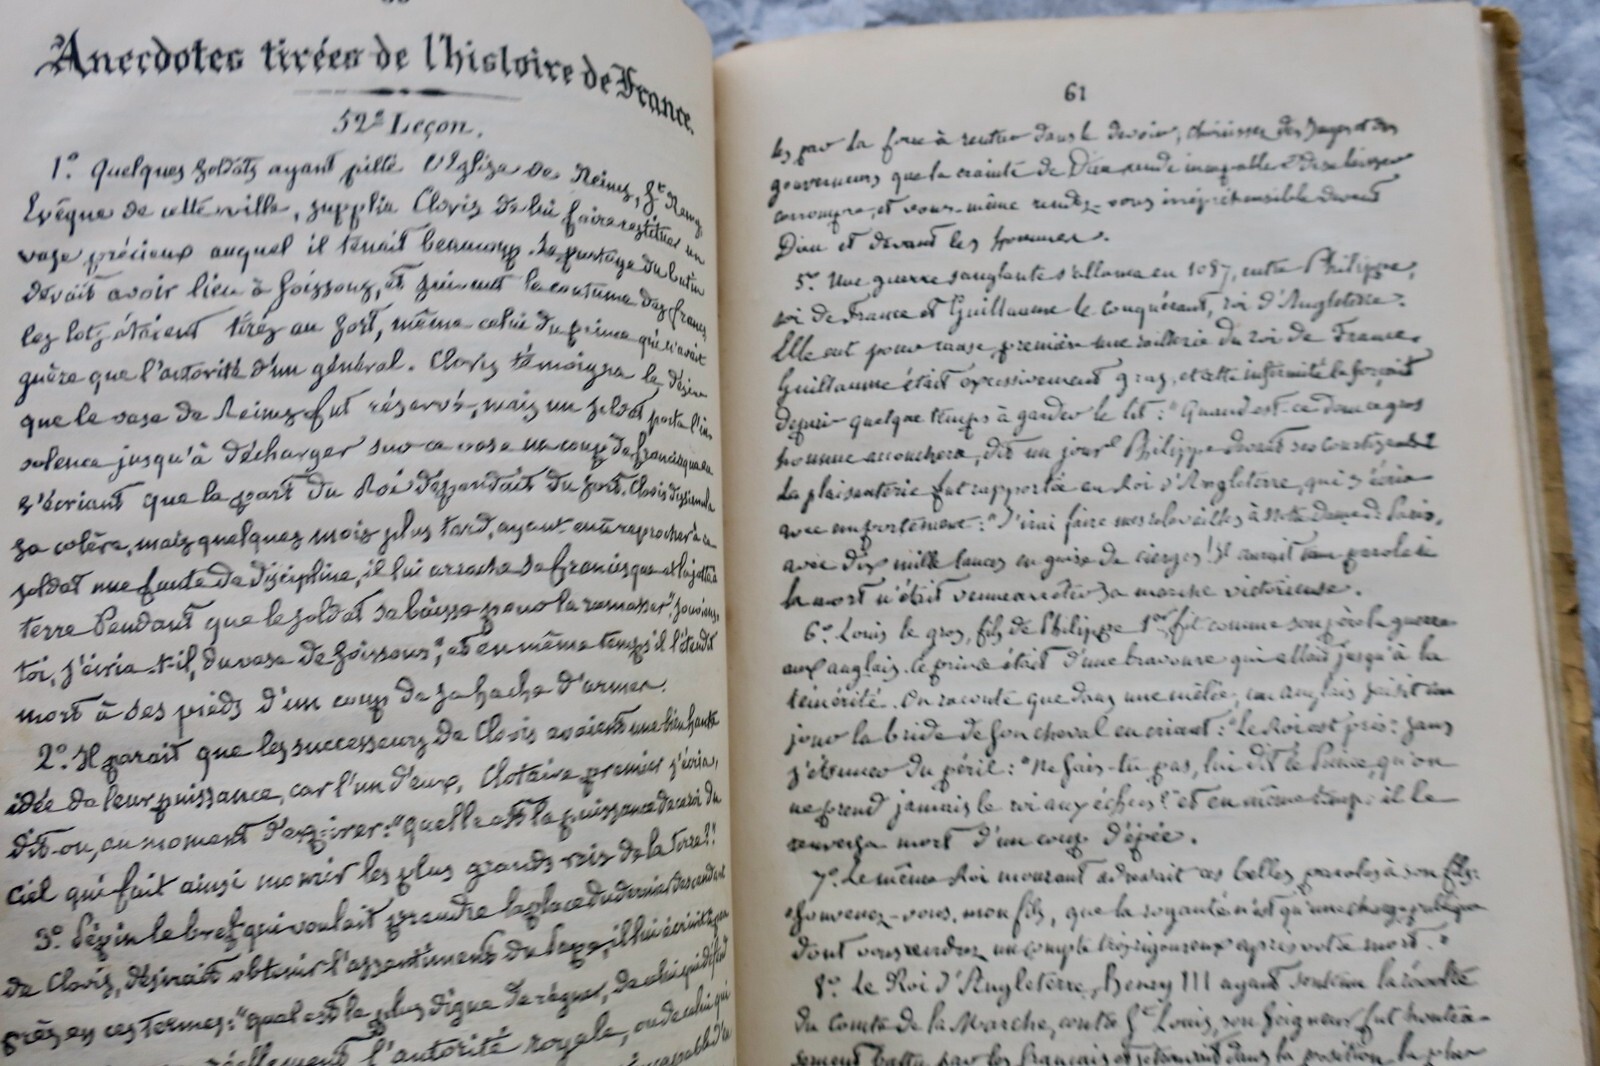 Anecdotes tirées de l'histoire de France.
52e Leçon.
1° Quelques soldats ayant pillé l'Eglise de Reims, St Remy,
Evêque de cette ville, supplia Clovis de lui faire restituer un
vase précieux auquel il tenait beaucoup. Le partage du butin
devait avoir lieu à Soissons, et suivant la coutume des francs
les lots étaient tirés au sort, même celui du prince qui n'avait
guère que l'autorité d'un général. Clovis témoigna le désir
que le vase de Reims fut réservé, mais un soldat porta l'in-
solence jusqu'à décharger sur ce vase un coup de francisque en
s'écriant que la part du Roi dépendait du sort. Clovis dissimula
sa colère, mais quelques mois plus tard, ayant eu à reprocher à ce
soldat une faute de discipline, il lui arracha sa francisque et la jetta à
terre Pendant que le soldat se baisse pour la ramasser "souviens-
toi, s'écria-t-il, du vase de Soissons", et en même temps il l'étendit
mort à ses pieds d'un coup de sa hache d'armes.
2° Il parait que les successeurs de Clovis avaient une bien haute
idée de leur puissance, car l'un d'eux, Clotaire premier s'écria,
dit-on, au moment d'expirer: "quelle est la puissance de ce roi du
ciel qui fait ainsi mourir les plus grands rois de la terre?"
3° Pépin le bref qui voulait prendre la place du dernier descendant
de Clovis, désirait obtenir l'assentiment du Pape, il lui écrivit à peu
près en ces termes: "quel est le plus digne de régner, de celui qui
réellement l'autorité royale, ou de celui qui
capable d'en
61
les par la force à rentrer dans le devoir, choisissez des Juges et des
gouverneurs que la crainte de Dieu rende incapables de se laisser
corrompre, et vous-même rendez-vous irrépréhensible devant
Dieu et devant les hommes.
5° Une guerre sanglante s'alluma en 1087, entre Philippe,
roi de France et Guillaume le conquérant, roi d'Angleterre.
Elle eut pour cause première une raillerie du roi de France.
Guillaume était excessivement gras, et cette infirmité le forçait
depuis quelque temps à garder le lit: "Quand est-ce donc ce gros
homme accouchera, dit un jour Philippe devant ses courtisans?
La plaisanterie fut rapportée au Roi d'Angleterre, qui s'écria
avec emportement: "J'irai faire mes relevailles à Notre Dame de Paris,
avec dix mille lances en guise de cierges! Il aurait tenu parole si
la mort n'était venue arrêter sa marche victorieuse.
6° Louis le gros, fils de Philippe 1er fit comme son père la guerre
aux anglais. Ce prince était d'une bravoure qui allait jusqu'à la
témérité. On raconte que dans une mêlée, un anglais saisit un
jour la bride de son cheval en criant: "Le Roi est pris: sans
s'étonner du péril: "Ne sais-tu pas, lui dit le Prince, qu'on
ne prend jamais le roi aux échecs!" et en même temps il le
renversa mort d'un coup d'épée.
7° Le même Roi mourant adressait ces belles paroles à son fils:
"Souvenez-vous, mon fils, que la royauté n'est qu'une charge publique
dont vous rendrez un compte très rigoureux après votre mort."
8° Le Roi d'Angleterre, Henry III ayant soutenu la révolte
du comte de la Marche, contre St Louis, son Seigneur fut honteu-
sement battu par les français et se trouvait dans la position la plus